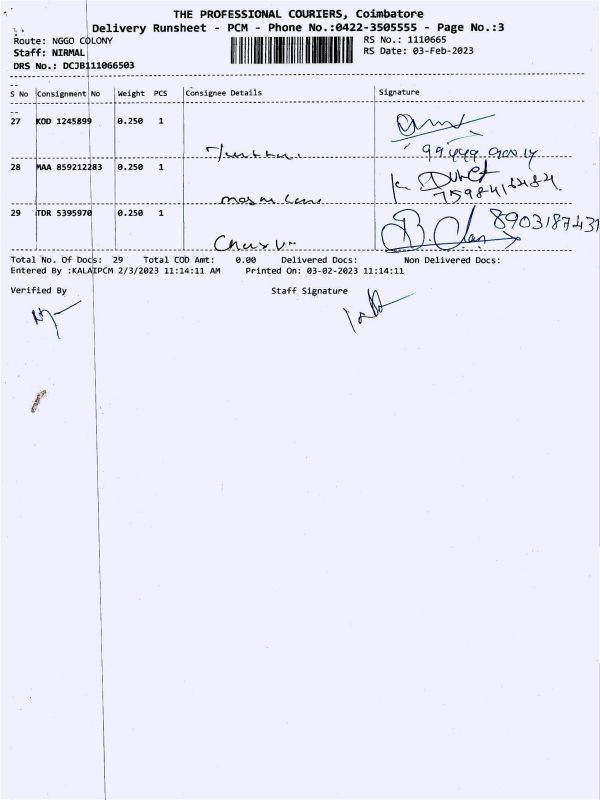 THE PROFESSIONAL COURIERS, Coimbatore
Delivery Runsheet - PCM - Phone No.:0422-3505555 - Page No.:3
Route: NGGO COLONY
RS No.: 1110665
Staff: NIRMAL
RS Date: 03-Feb-2023
DRS No.: DCJB111066503
S No Consignment No Weight PCS Consignee Details Signature
27 KOD 1245899 0.250 1
28 MAA 859212283 0.250 1
29 TDR 5395970 0.250 1
8903187431
Total No. Of Docs: 29 Total COD Amt: 0.00 Delivered Docs: Non Delivered Docs:
Entered By :KALAIPCM 2/3/2023 11:14:11 AM Printed On: 03-02-2023 11:14:11
Verified By Staff Signature